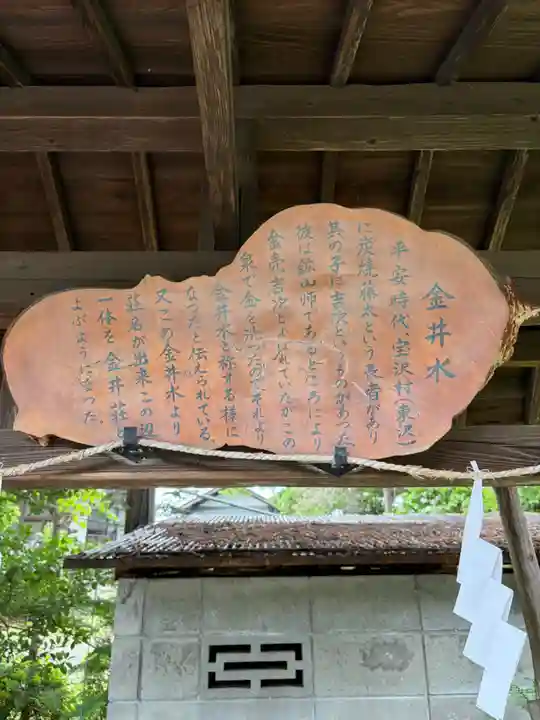 金井水
平安時代、宝沢村(東沢)
に炭焼藤太という長者があり
其の子に吉次というものがあった
彼は鉱山師であるところにより
金売吉次とよばれていたがこの
泉で金を洗ったのでそれより
金井水と称する様に
なったと伝えられている。
又この金井水より
荘名が出来この辺
一体を金井荘と
よぶようになった。